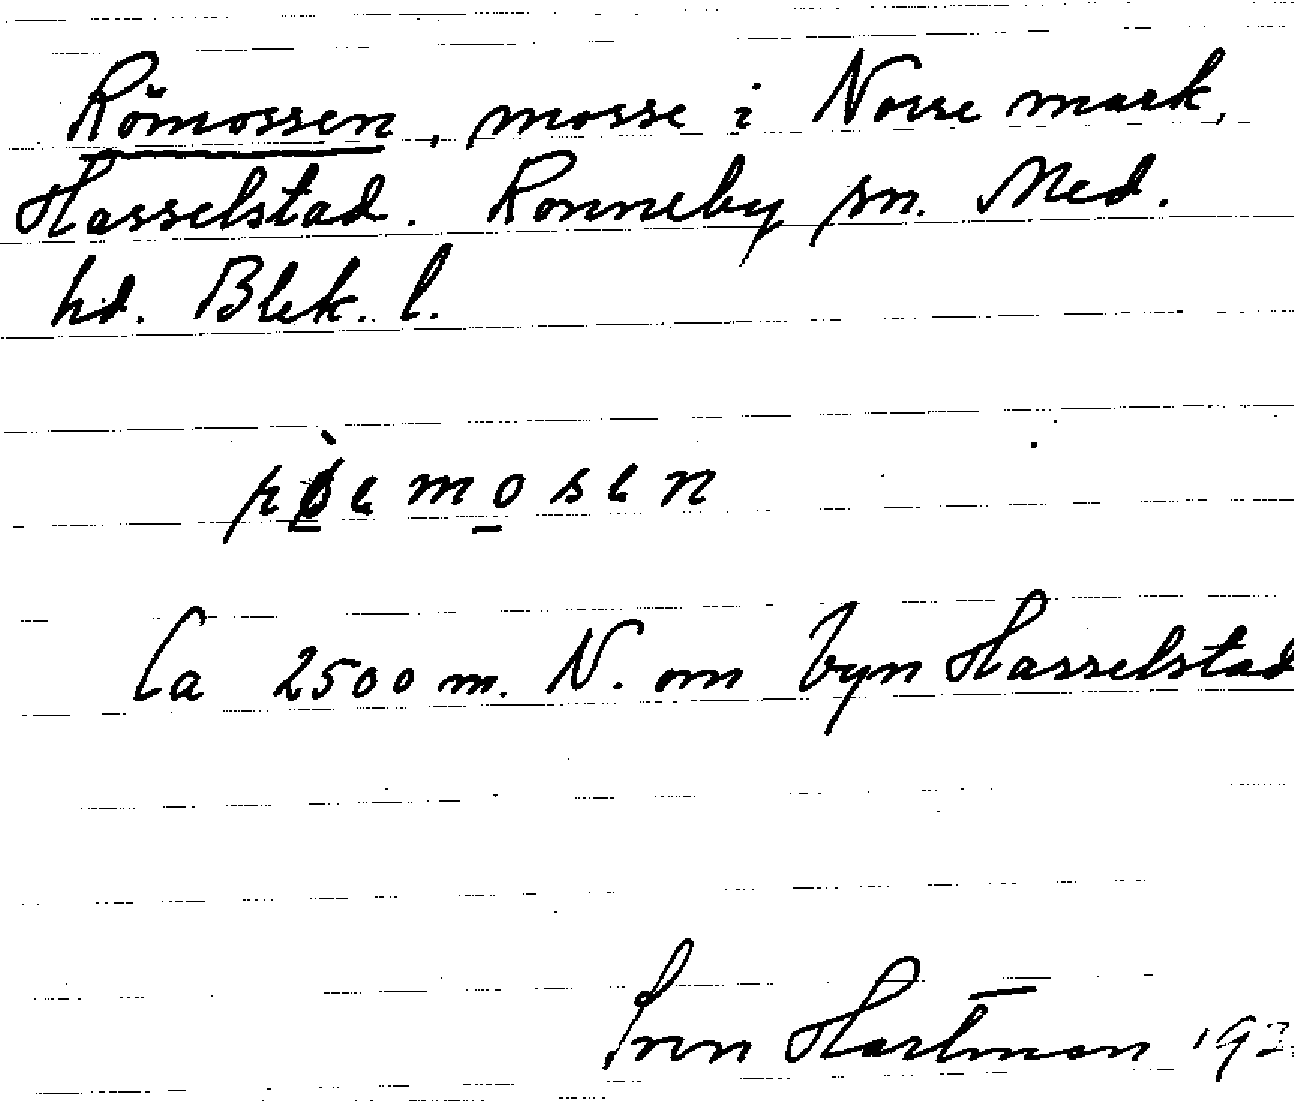 Römossen, mosse i Norre mark,
Hasselstad. Ronneby sn. Med.
hd. Blek. l.
Ca 2500 m. N. om byn Hasselstad
Sven Hartman 193